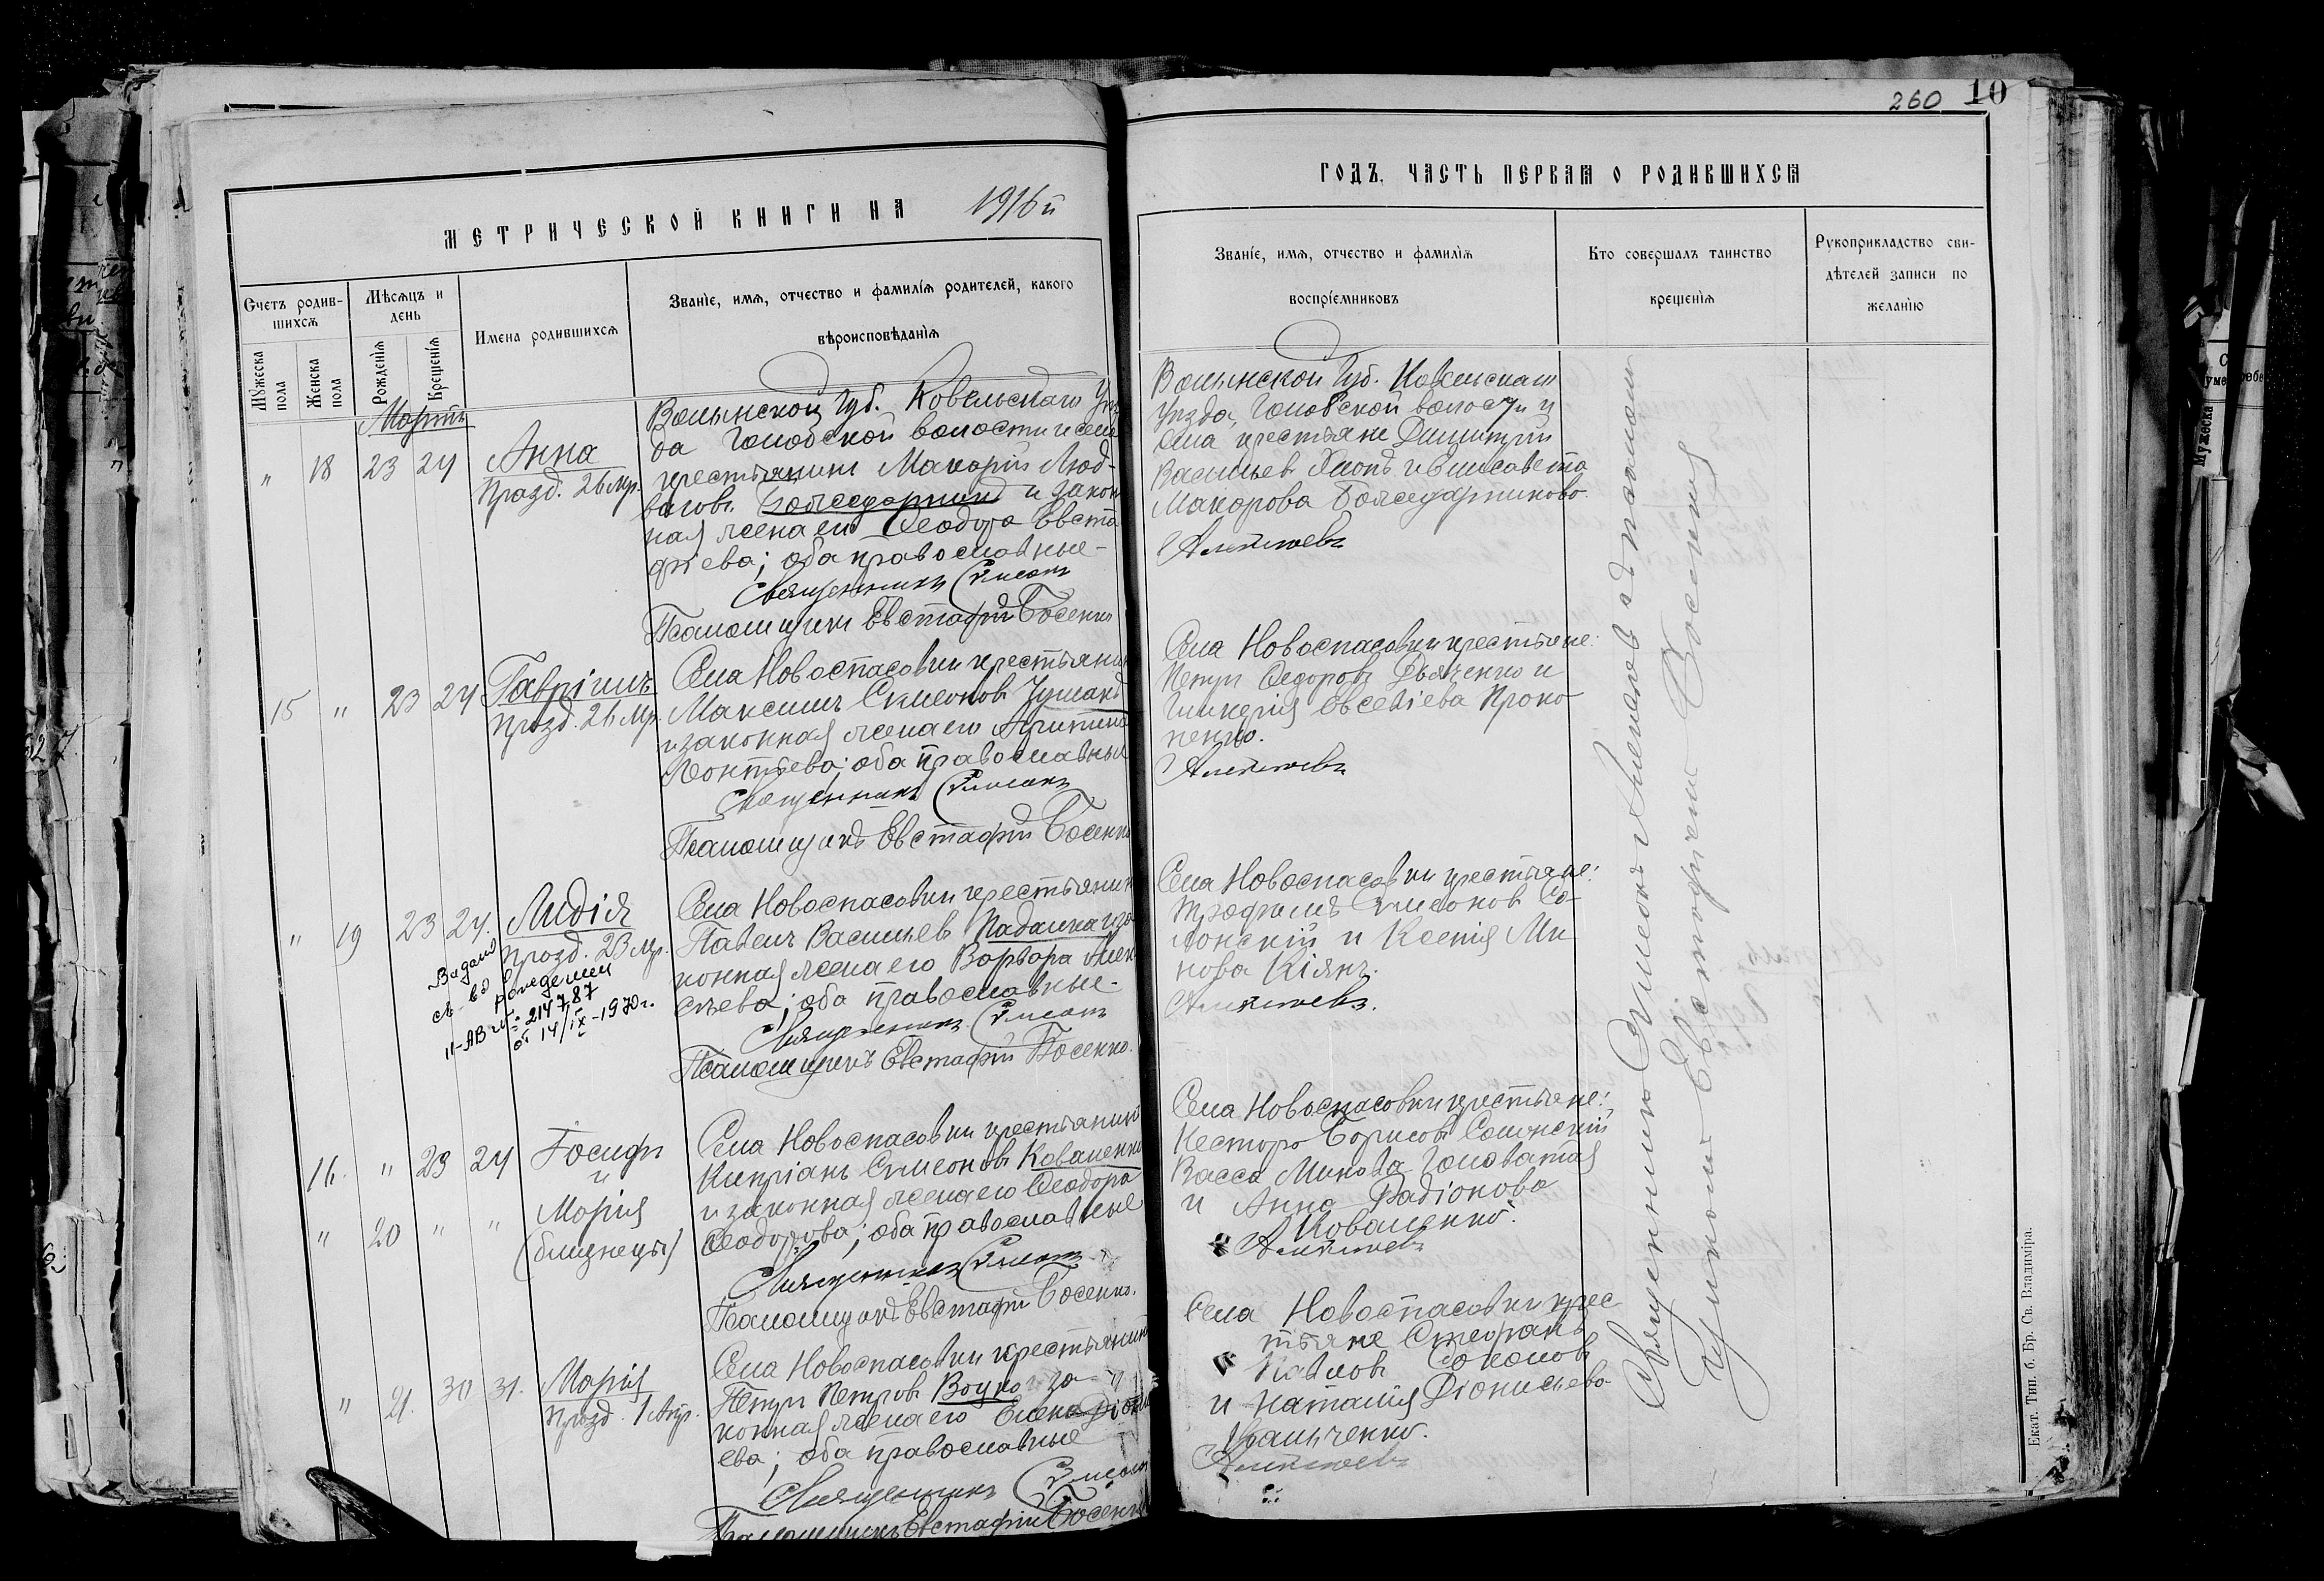 260 10
МЕТРИЧЕСКОЙ КНИГИ НА 1916й
ГОДЪ, ЧАСТЬ ПЕРВАЯ О РОДИВШИХСЯ
Счетъ родив-
шихся
Мужеска пола
Женска пола
Мѣсяцъ и
день
Рожденія
Крещенія
Имена родившихся
Званіе, имя, отчество и фамилія родителей, какого
вѣроисповѣданія
Званіе, имя, отчество и фамилія
воспріемниковъ
Кто совершалъ таинство
крещенія
Рукоприкладство сви-
дѣтелей записи по
желанію
Мартъ
" 18 23 24
Анна
Празд. 26 Мр.
Волынской Губ. Ковельскаго Уѣз
да Головской волости и села
крестьянинъ Макарій
и закон
ная жена его Ѳеодора Евста
фіева; оба православные-
Священникъ Симеонъ
Псаломщикъ Евстафій Босенко
Волынской Губ. Ковельскаго
Уѣзда, Головской волости и
села крестьяне Димитрій
Васильевъ и Елисавета
Макарова
15 " 23 24
Гавріилъ
празд. 26 Мр.
Села Новоспасовки крестьянинъ
Максимъ Симеоновъ Чумакъ
и законная жена его
Леонтіева; оба православные
Священникъ Симеонъ
Псаломщикъ Евстафій Босенко
Села Новоспасовки крестьяне:
Петръ Ѳедоровъ Дьяченко и
Гликерія Евсевіева Проко
пенко.
" 19 23 24.
Лидія
празд. 23 Мр.
Видано
св-во о
рождении
II-АВ № 214787
от 14/IX-1970г.
Села Новоспасовки крестьянинъ
Павелъ Васильевъ Падалка и за
конная жена его Варвара Алек
сѣева; оба православные-
Священникъ Симеонъ
Псаломщикъ Евстафій Босенко.
Села Новоспасовки крестьяне:
Трофимъ Симеоновъ Со-
лонскій и Ксенія Ми
нова Кіянъ.
16. " 23 24
Іосифъ
и
" 20 " "
Марія
(близнецы)
Села Новоспасовки крестьянинъ
Кипріанъ Симеоновъ Коваленко
и законная жена его Ѳеодора
Ѳеодорова; оба православные
Священникъ Симеонъ
Псаломщикъ Евстафій Босенко.
Села Новоспасовки крестьяне:
Несторъ Борисовъ Солонскій
Васса Минова Головатая
и Анна Радіонова
Коваленко.
" 21. 30 31.
Марія
празд. 1 Апр.
Села Новоспасовки крестьянинъ
Петръ Петровъ Воцко за
конная жена его Елена
ева; оба православные
Священникъ Симеонъ
Псаломщикъ Евстафій Босенко
Села Новоспасовки крес
тьяне Стефанъ
Павловъ Соколовъ
и Наталія Діонисьева
Иванченко.
Священникъ Симеонъ съ псалом
щикомъ Евстафіемъ Босенко
Екат. Тип. б. Бр. Св. Владиміра.